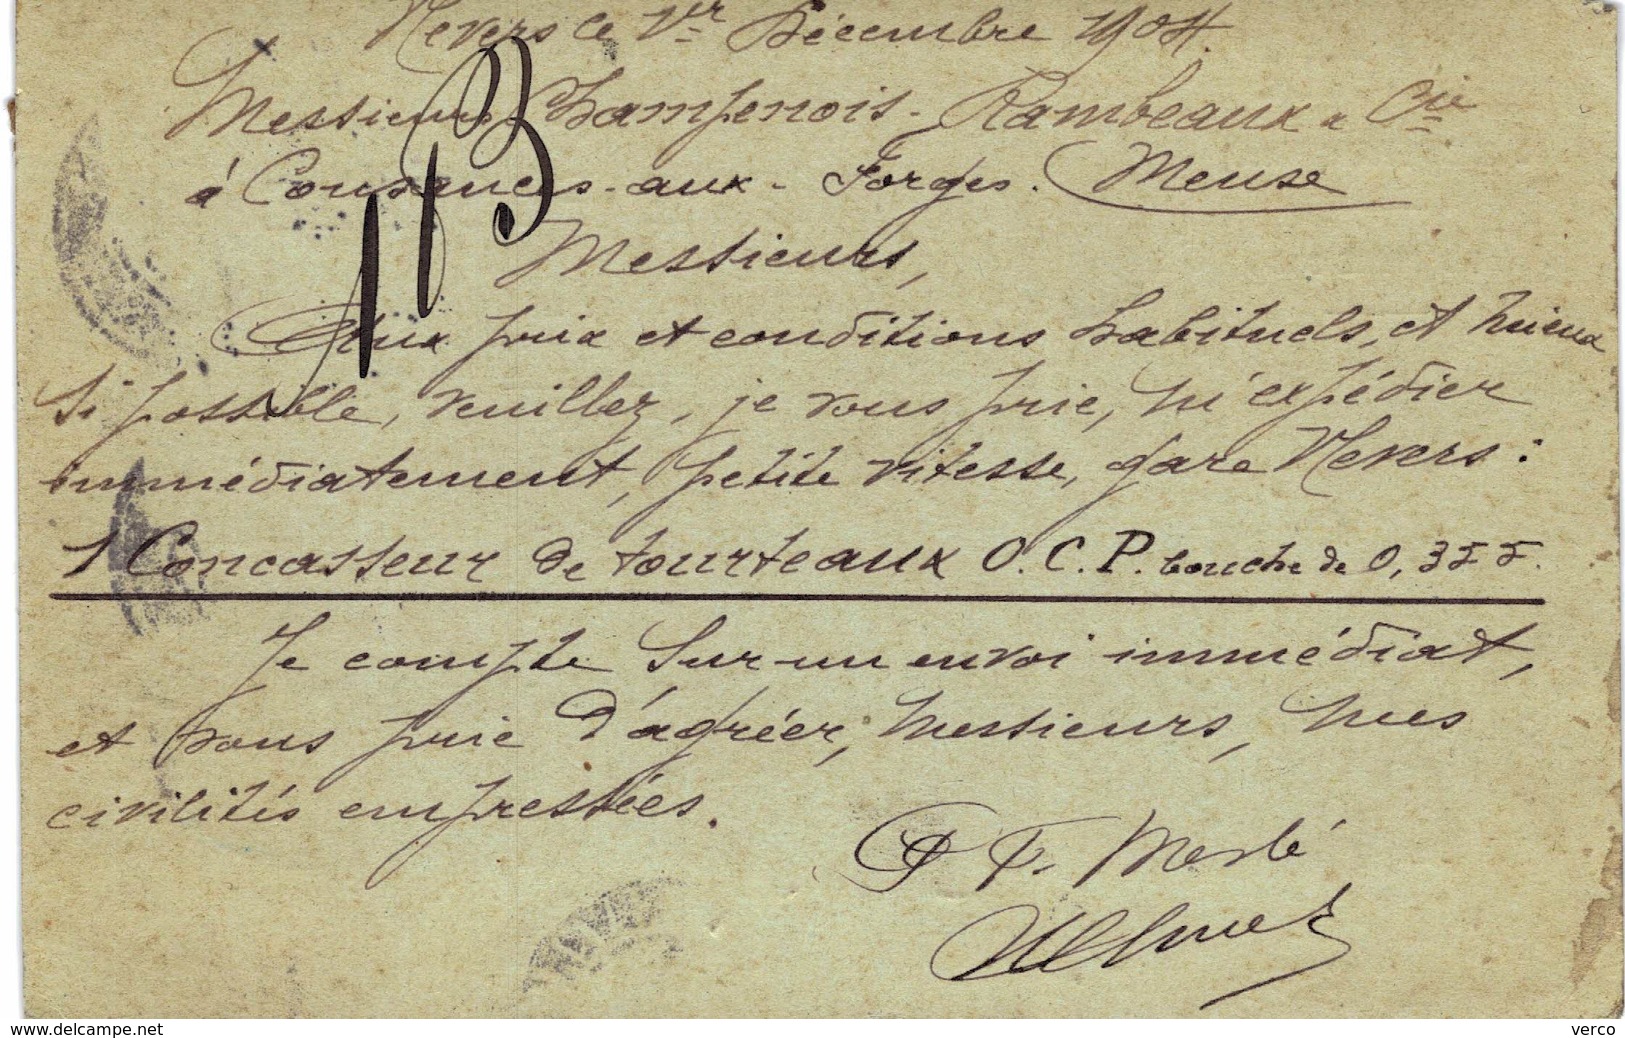 Nevers le 1er Décembre 1904.
Messieurs Champenois-Rambeaux & Cie
à Cousances-aux-Forges. Meuse
113
Messieurs,
Aux prix et conditions habituels, et mieux
si possible, veuillez, je vous prie, m'expédier
immédiatement, petite vitesse, gare Nevers:
1 Concasseur de tourteaux O.C.P. bouche de 0,355.
Je compte sur un envoi immédiat,
et vous prie d'agréer, Messieurs, mes
civilités empressées.
P. F. Merlé
www.delcampe.net
verco